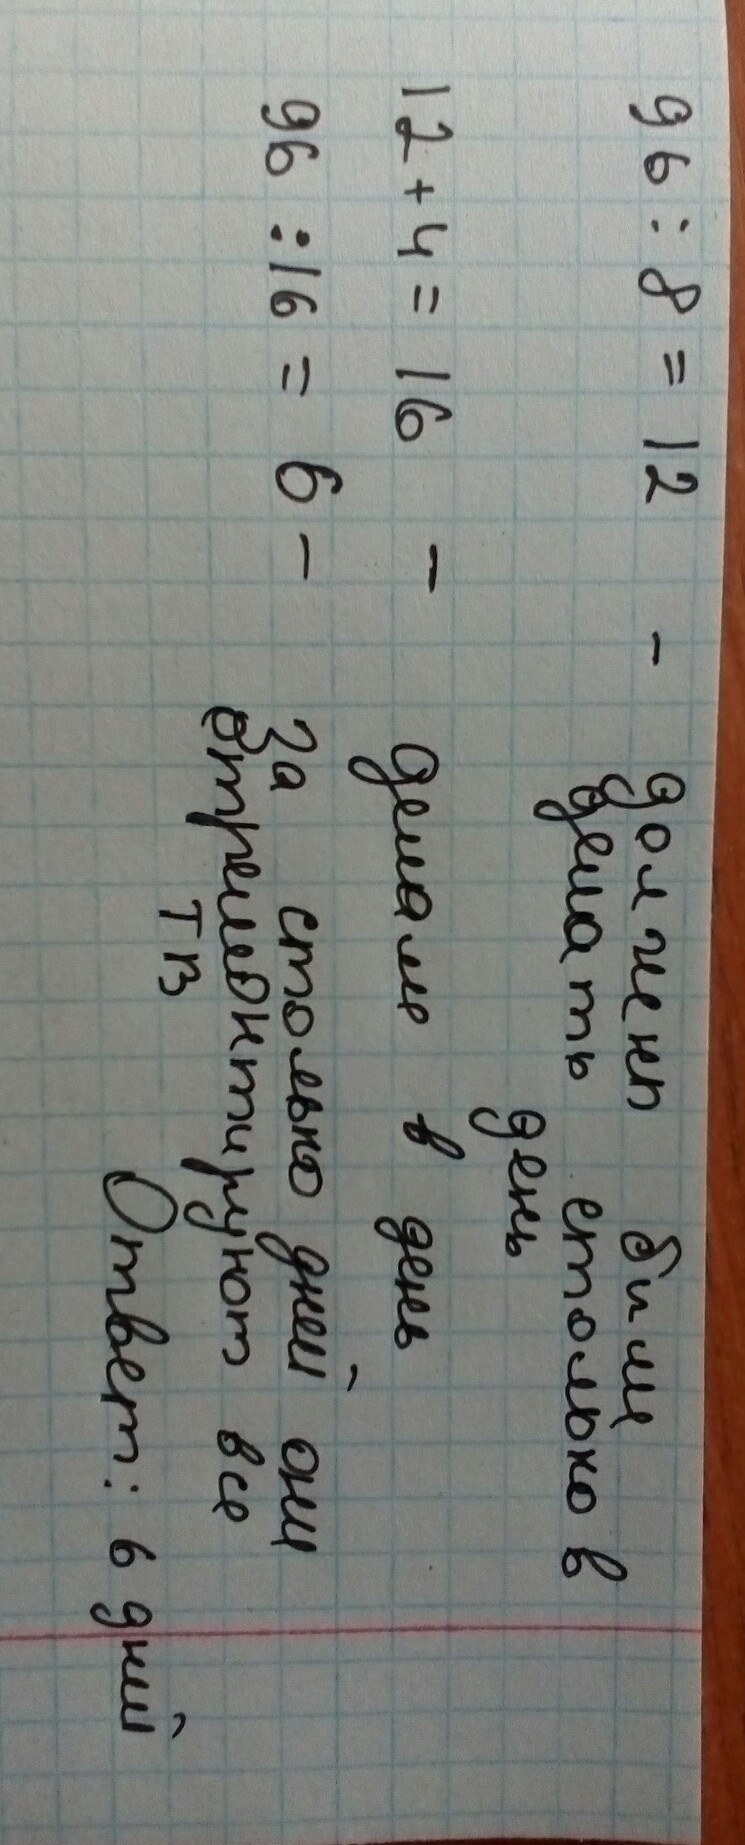 96 : 8 = 12 - должен били
делать столько в
день
12 + 4 = 16 - делали в день
96 : 16 = 6 - За столько дней они
отремонтируют все
ТВ
Ответ: 6 дней